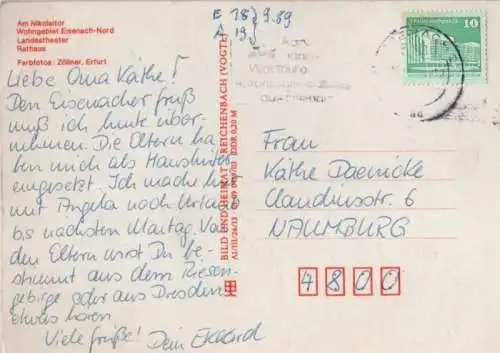 Am Nikolaitor
Wohngebiet Eisenach-Nord
Landestheater
Rathaus
Farbfotos: Zöllner, Erfurt
E 18 } 9.89
A 19
10
Liebe Oma Käthe!
Den Eisenacher Gruß
muß ich heute über-
nehmen. Die Eltern ha-
ben mich als Haushüter
eingesetzt. Ich mache hier
mit Angela noch Urlaub
bis nächsten Montag. Von
den Eltern wirst Du be-
stimmt aus dem Riesen-
gebirge oder aus Dresden
etwas hören.
Viele Grüße! Dein Ekkard
BILD UND HEIMAT REICHENBACH (VOGTL)
A1/III/26/13 DDR 0,20 M
Frau
Käthe Daenicke
Claudiusstr. 6
NAUMBURG
4800